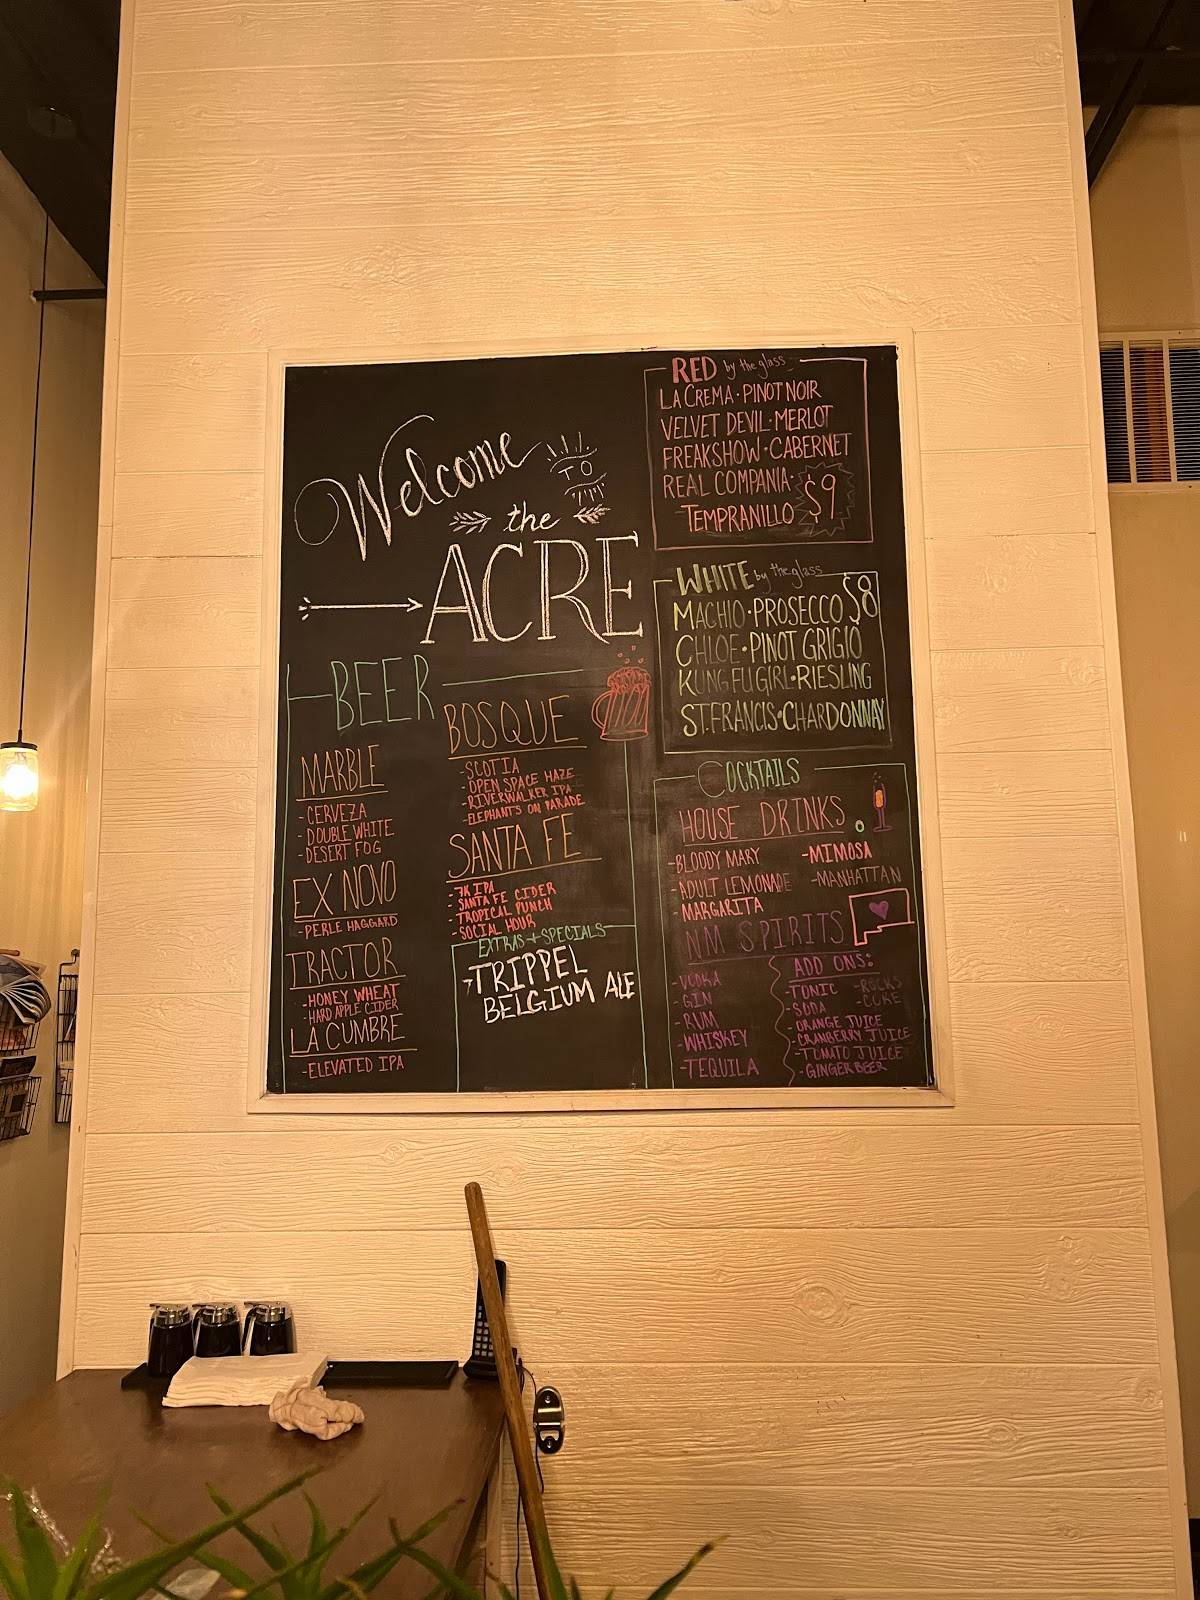 Welcome
TO
the
ACRE
BEER
MARBLE
-CERVEZA
-DOUBLE WHITE
-DESERT FOG
EX NOVO
-PERLE HAGGARD
TRACTOR
-HONEY WHEAT
-HARD APPLE CIDER
LA CUMBRE
-ELEVATED IPA
BOSQUE
-SCOTIA
-OPEN SPACE HAZE
-RIVERWALKER IPA
-ELEPHANTS ON PARADE
SANTA FE
-7K IPA
-SANTA FE CIDER
-TROPICAL PUNCH
-SOCIAL HOUR
EXTRAS + SPECIALS
TRIPPEL
BELGIUM ALE
RED by the glass
LA CREMA·PINOT NOIR
VELVET DEVIL·MERLOT
FREAKSHOW·CABERNET
REAL COMPANIA·
TEMPRANILLO $9
WHITE by the glass
MACHIO·PROSECCO $8
CHLOE·PINOT GRIGIO
KUNG FU GIRL·RIESLING
ST.FRANCIS·CHARDONNAY
COCKTAILS
HOUSE DRINKS
-BLOODY MARY -MIMOSA
-ADULT LEMONADE -MANHATTAN
-MARGARITA
NM SPIRITS
-VODKA
-GIN
-RUM
-WHISKEY
-TEQUILA
ADD ONS:
-TONIC -ROCKS
-SODA -COKE
-ORANGE JUICE
-CRANBERRY JUICE
-TOMATO JUICE
-GINGER BEER